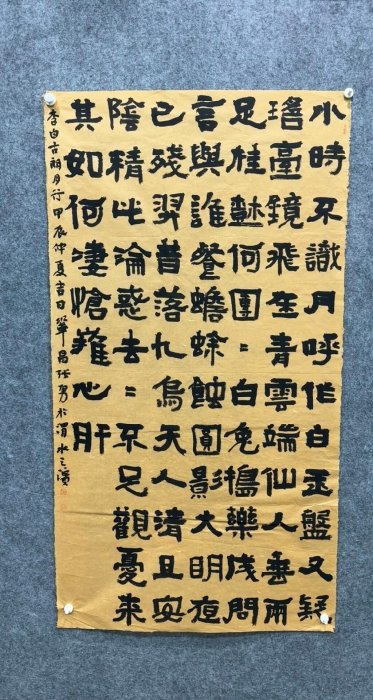 小時不識月呼作白玉盤又疑
瑤臺鏡飛在青雲端仙人垂兩
足桂樹何團〻白兔搗藥成問
言與誰餐蟾蜍蝕圓影大明夜
已殘羿昔落九烏天人清且安
陰精此淪惑去〻不足觀憂來
其如何淒愴摧心肝
李白古朗月行甲辰仲夏吉日鞏昌張勇於渭水之濱